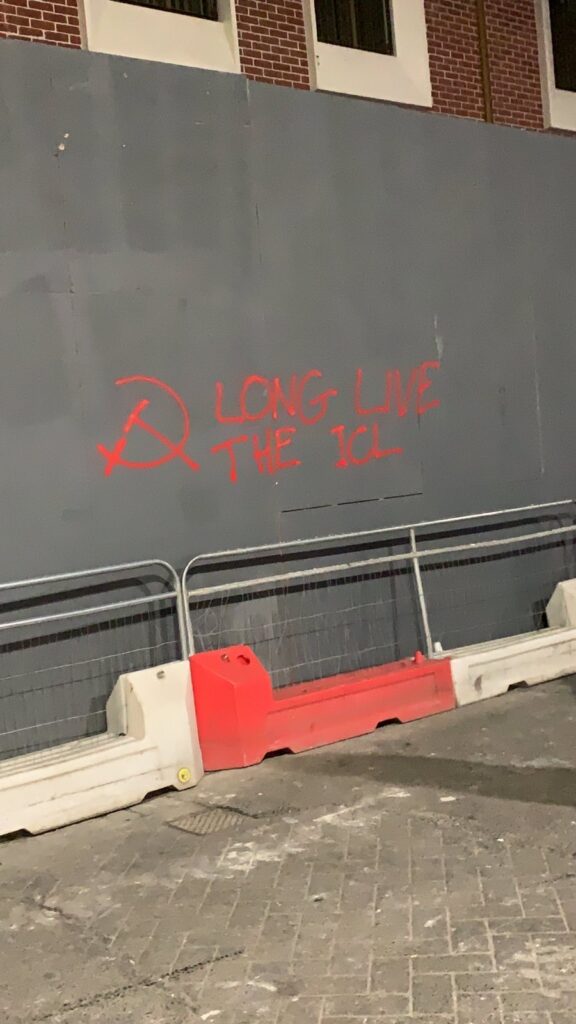 LONG LIVE
THE ICL